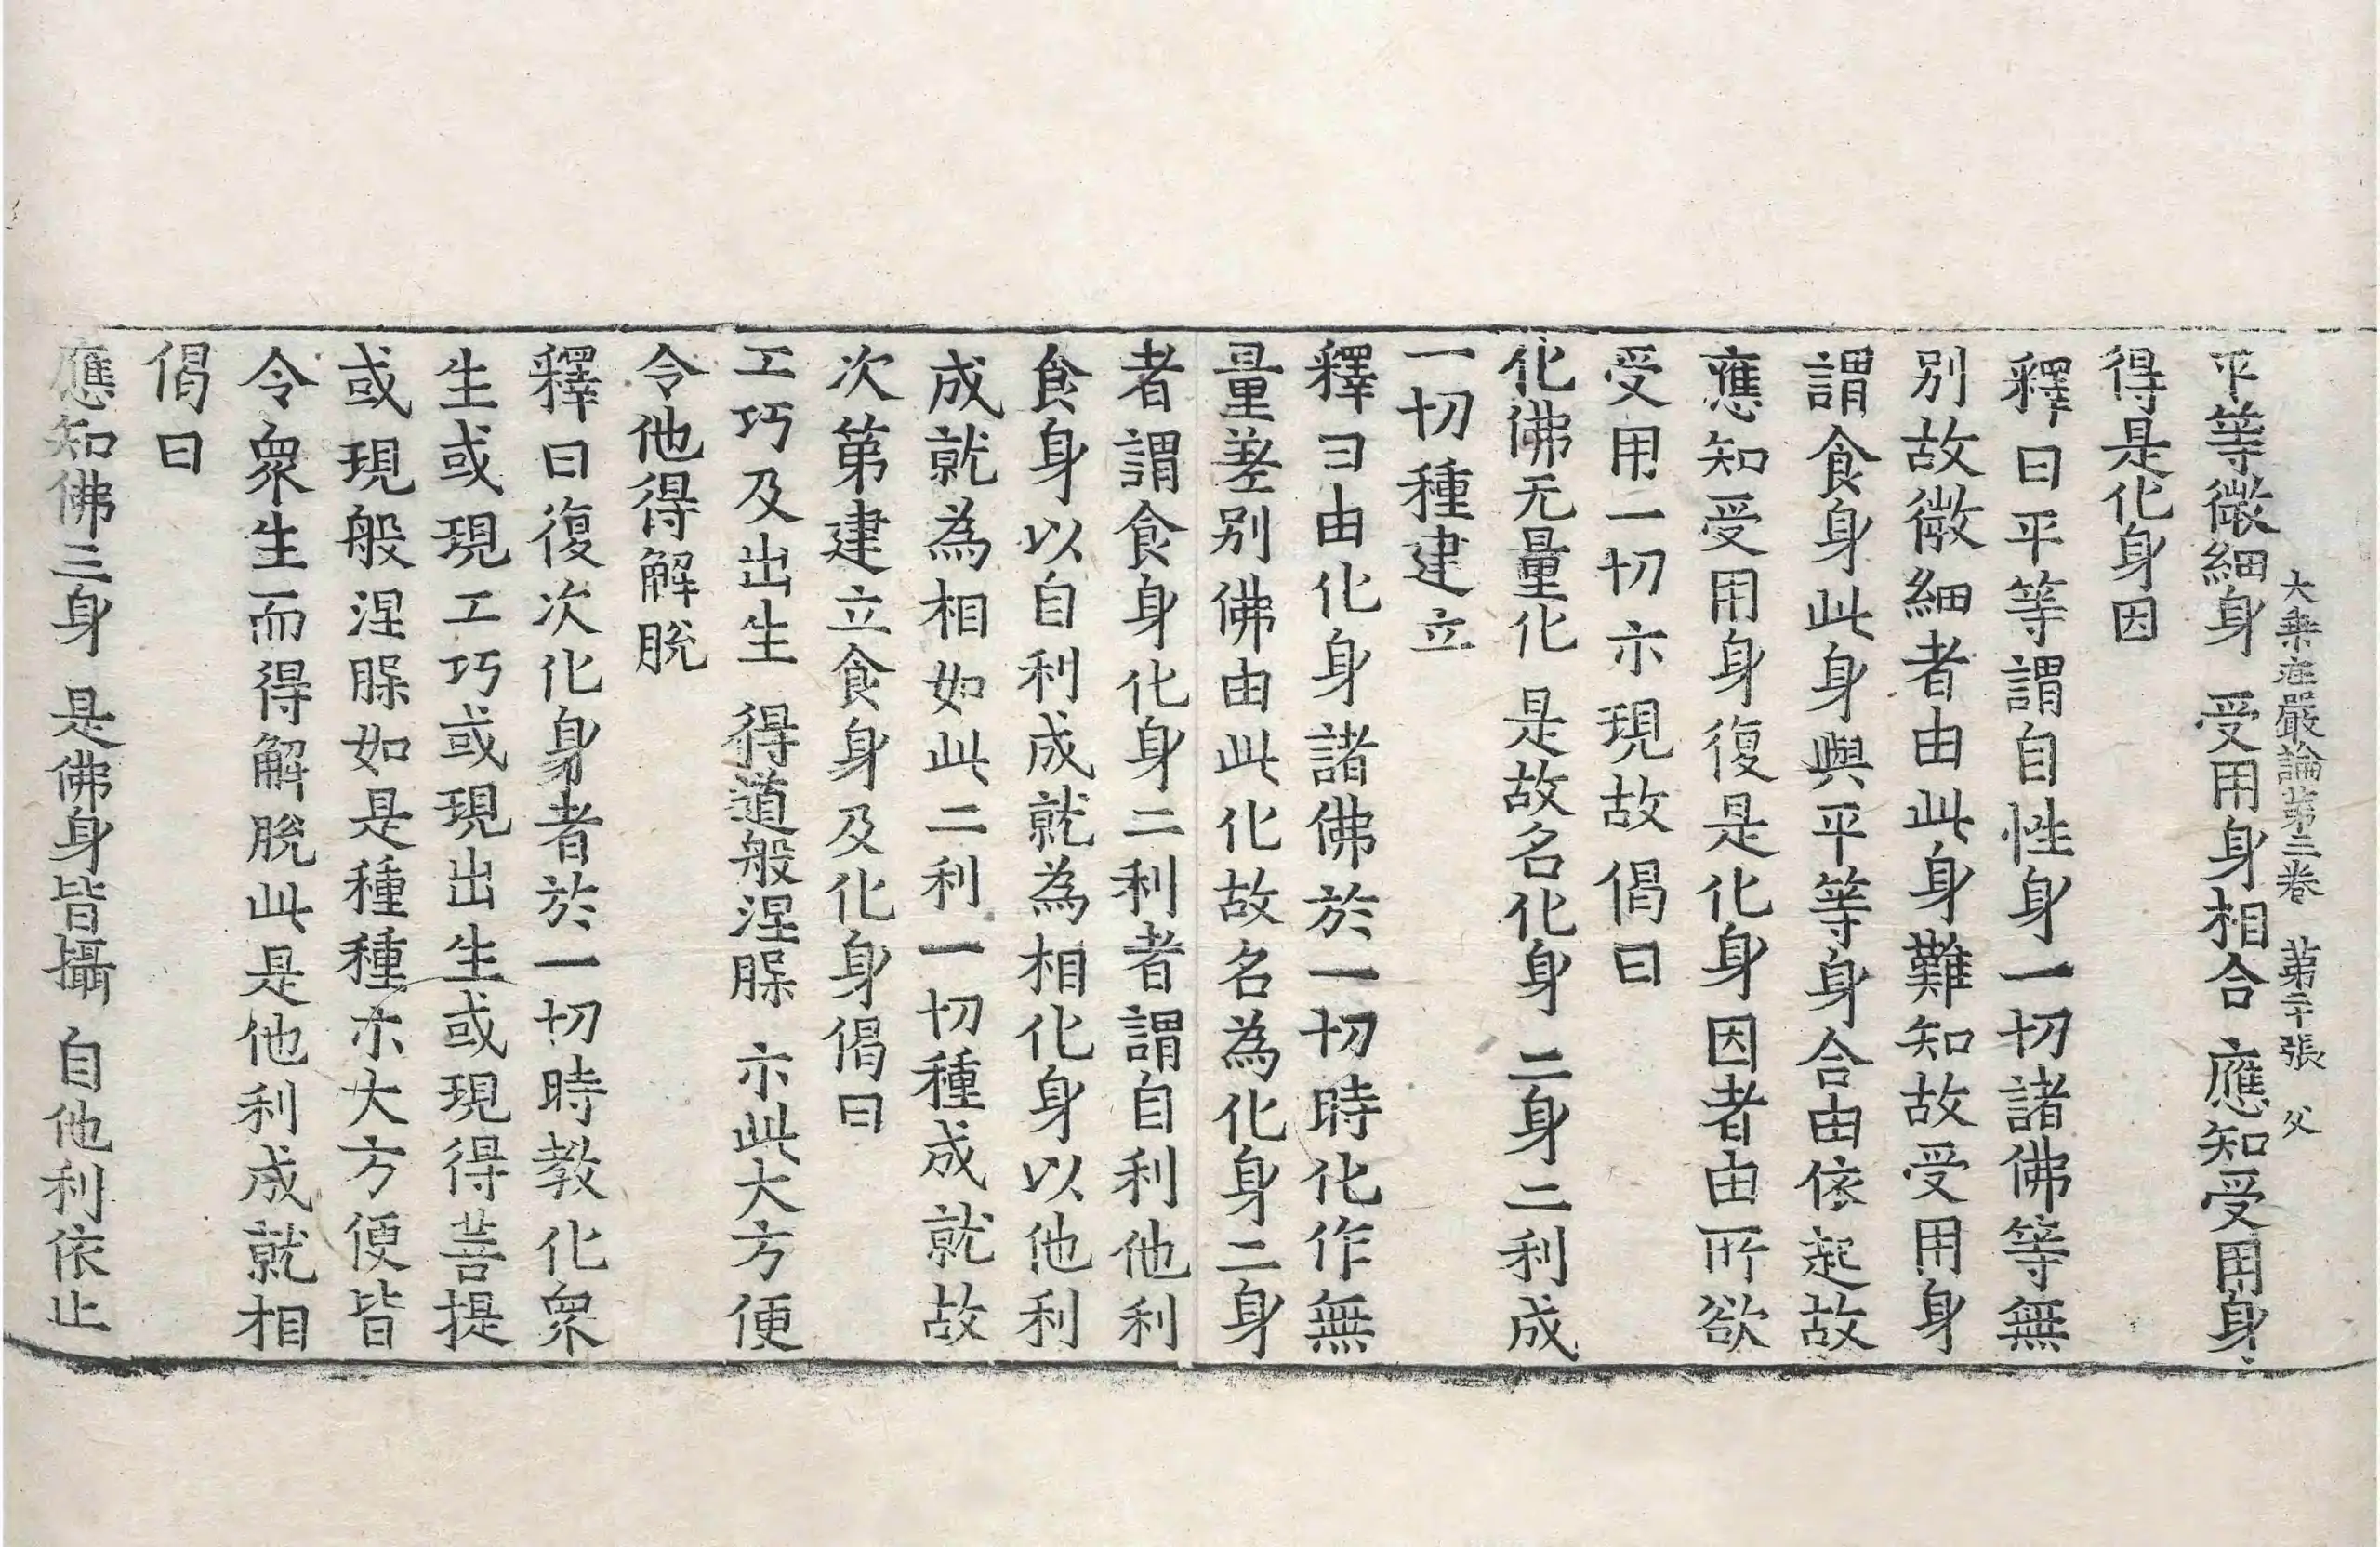 大乗庄嚴論第三卷　第二十張　父
平等微細身　受用身相合　應知受用身
得是化身因
釋曰平等謂自性身一切諸佛等無
别故微細者由此身難知故受用身
謂食身此身與平等身合由依起故
應知受用身復是化身因者由所欲
受用一切示現故偈曰
化佛无量化　是故名化身　二身二利成
一切種建立
釋曰由化身諸佛於一切時化作無
量差别佛由此化故名為化身二身
者謂食身化身二利者謂自利他利
食身以自利成就為相化身以他利
成就為相如此二利一切種成就故
次第建立食身及化身偈曰
工巧及出生　得道般涅槃　示此大方便
令他得解脫
釋曰復次化身者於一切時教化衆
生或現工巧或現出生或現得菩提
或現般涅槃如是種種示大方便皆
令衆生而得解脫此是他利成就相
偈曰
應知佛三身　是佛身皆攝　自他利依止